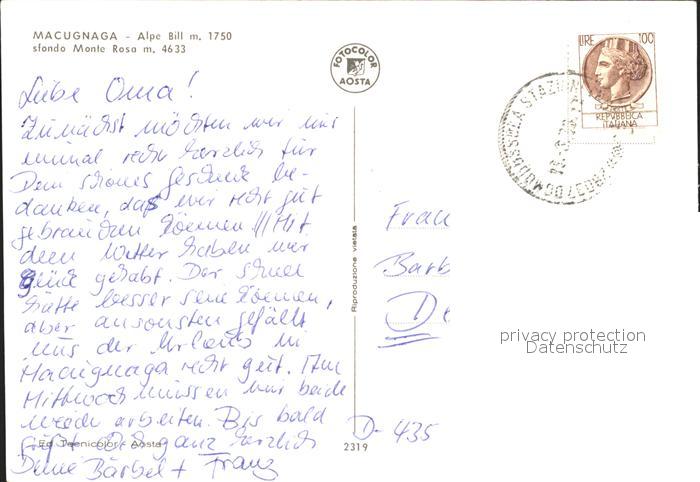 MACUGNAGA - Alpe Bill m. 1750
sfondo Monte Rosa m. 4633
FOTOCOLOR
AOSTA
LIRE 100
REPVBBLICA
ITALIANA
DOMODOSSOLA STAZION
Liebe Oma!
Zunächst möchten wir uns
einmal recht herzlich für
Dein schönes Geschenk be-
danken, daß wir recht gut
gebrauchen können!!! Mit
dem Wetter haben wir
Glück gehabt. Der Schnee
hätte besser sein können,
aber ansonsten gefällt
uns der Urlaub in
Macugnaga recht gut. Am
Mittwoch müssen wir beide
wieder arbeiten. Bis bald
grüßt Dich ganz herzlich
Deine Bärbel + Franz
Ed. Tecnicolor - Aosta
Riproduzione vietata
2319
Frau
Barb
D-435
privacy protection
Datenschutz